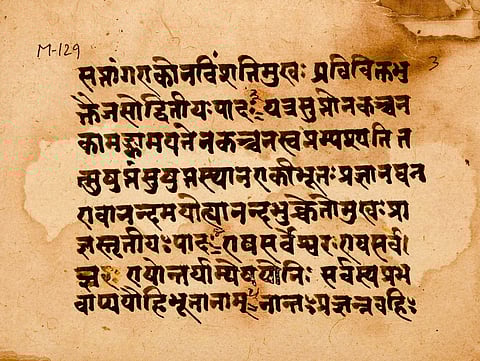 M-129
3
सप्तांगएकोनविंशतिमुखः प्रविविक्तभु
क्तैजसोद्वितीयःपादः यत्रसुप्तोनकच्चन
कामङ्कामयतेनकच्चनस्वप्नम्पश्यति त
त्सुषुप्तंसुषुप्तस्थानएकीभूतःप्रज्ञानघन
एवानन्दमयोह्यानन्दभुक्चेतोमुखःप्रा
ज्ञस्तृतीयःपादः एषसर्वेश्वरःएषसर्व
ज्ञः एषोन्तर्याम्येषयोनिः सर्वस्यप्रभ
वाप्ययौहिभूतानाम् नान्तःप्रज्ञन्नबहिः